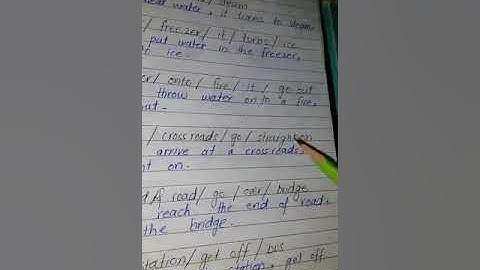 / steam
heat water, it turns to steam.
/ freezer / it / turns / ice
put water in the freezer,
to ice.
/ onto / fire / it / go out
throw water onto a fire,
out.
/ crossroads / go / straight on
arrive at a crossroads
on.
of road / go / over / bridge
reach the end of road
the bridge.
station / get off / bus
station, get off